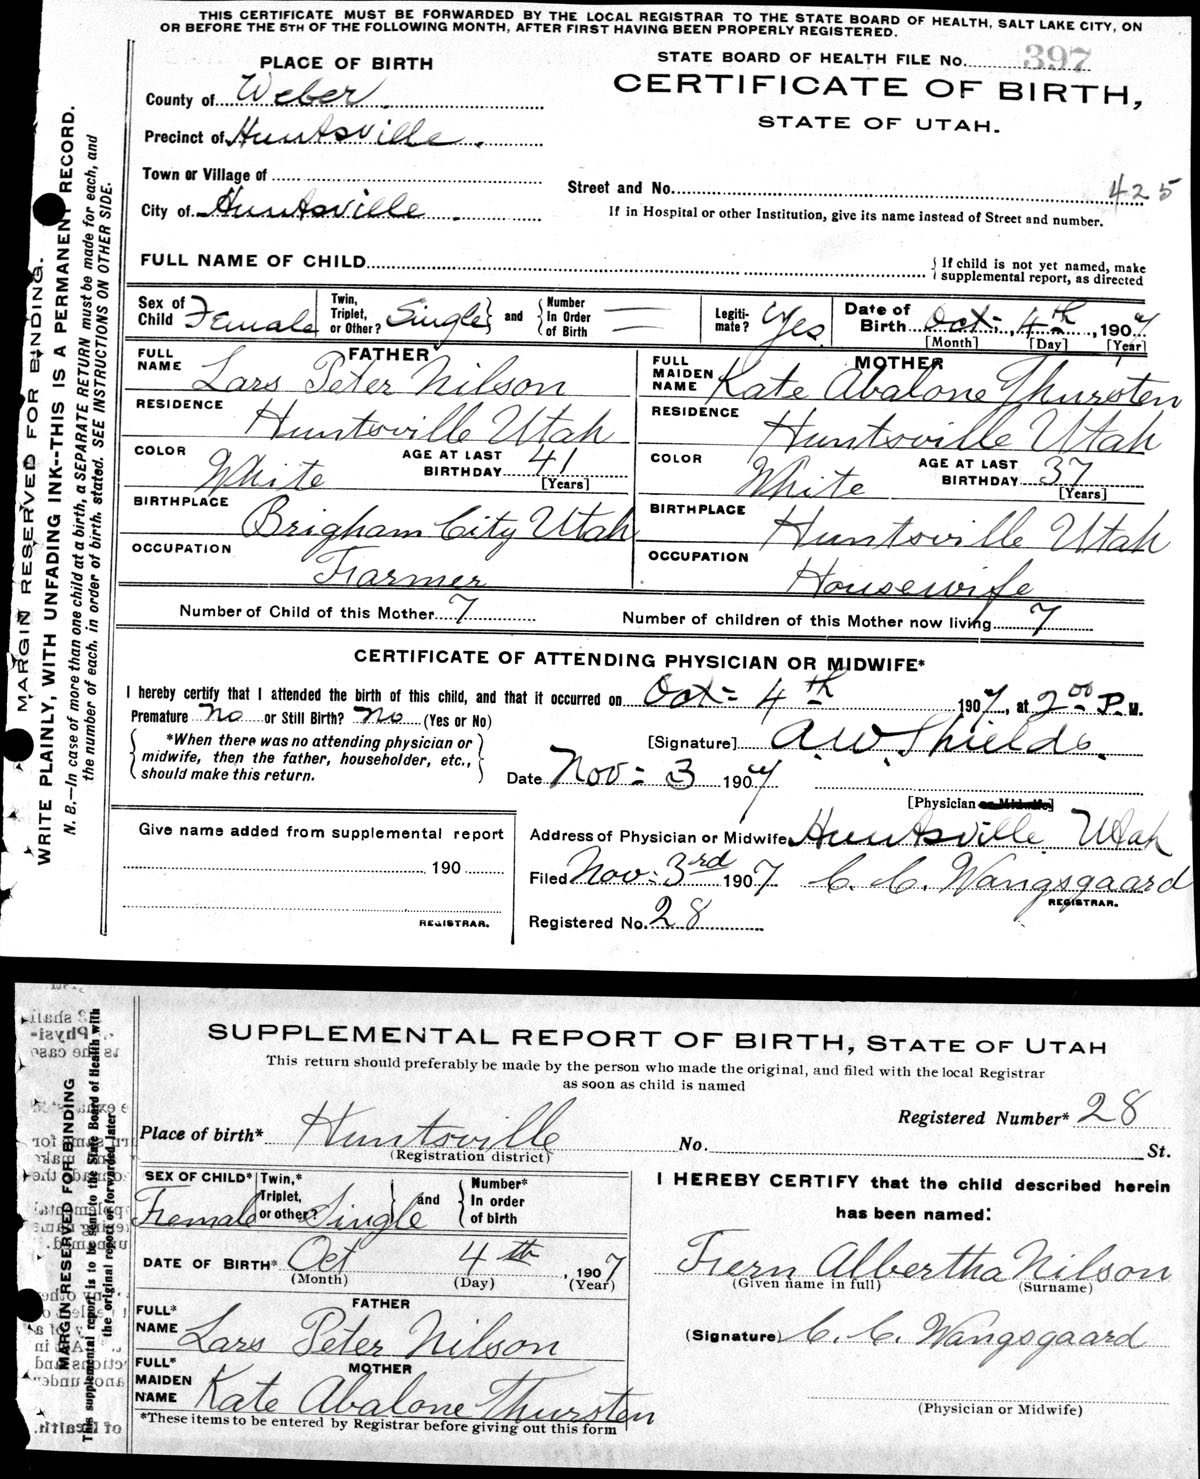 THIS CERTIFICATE MUST BE FORWARDED BY THE LOCAL REGISTRAR TO THE STATE BOARD OF HEALTH, SALT LAKE CITY, ON
OR BEFORE THE 5TH OF THE FOLLOWING MONTH, AFTER FIRST HAVING BEEN PROPERLY REGISTERED.
MARGIN RESERVED FOR BINDING.
WRITE PLAINLY, WITH UNFADING INK--THIS IS A PERMANENT RECORD.
N. B.—In case of more than one child at a birth, a SEPARATE RETURN must be made for each, and
the number of each, in order of birth, stated. SEE INSTRUCTIONS ON OTHER SIDE.
PLACE OF BIRTH
STATE BOARD OF HEALTH FILE No. 397
CERTIFICATE OF BIRTH,
STATE OF UTAH.
County of Weber.
Precinct of Huntsville.
Town or Village of
City of Huntsville.
Street and No. 425
If in Hospital or other Institution, give its name instead of Street and number.
FULL NAME OF CHILD
{ If child is not yet named, make
supplemental report, as directed
Sex of Child Female
Twin, Triplet, or Other? Single } and { Number In Order of Birth
Legiti-mate? Yes
Date of Birth Oct- 4th, 1907
[Month] [Day] [Year]
FATHER
FULL NAME Lars Peter Nilson
RESIDENCE Huntsville Utah
COLOR White
AGE AT LAST BIRTHDAY 41 [Years]
BIRTHPLACE Brigham City Utah
OCCUPATION Farmer
MOTHER
FULL MAIDEN NAME Kate Abalone Thursten
RESIDENCE Huntsville Utah
COLOR White
AGE AT LAST BIRTHDAY 37 [Years]
BIRTHPLACE Huntsville Utah
OCCUPATION Housewife
Number of Child of this Mother 7
Number of children of this Mother now living 7
CERTIFICATE OF ATTENDING PHYSICIAN OR MIDWIFE*
I hereby certify that I attended the birth of this child, and that it occurred on Oct= 4th 1907, at 2 00 P.M.
Premature No or Still Birth? No (Yes or No)
{ *When there was no attending physician or
midwife, then the father, householder, etc.,
should make this return. }
[Signature] A.W. Shields.
Date Nov= 3 1907
[Physician or Midwife]
Give name added from supplemental report
190
REGISTRAR.
Address of Physician or Midwife Huntsville Utah
Filed Nov= 3rd 1907 C. C. Wangsgaard
REGISTRAR.
Registered No. 28
SUPPLEMENTAL REPORT OF BIRTH, STATE OF UTAH
This return should preferably be made by the person who made the original, and filed with the local Registrar
as soon as child is named
MARGIN RESERVED FOR BINDING
This supplemental report is to be sent to the State Board of Health with
the original report or forwarded later
Registered Number* 28
Place of birth* Huntsville No. St.
(Registration district)
SEX OF CHILD* Female
Twin,* Triplet, or other? Single } and { Number* In order of birth
DATE OF BIRTH* Oct 4th, 1907
(Month) (Day) (Year)
FATHER
FULL* NAME Lars Peter Nilson
MOTHER
FULL* MAIDEN NAME Kate Abalone Thursten
*These items to be entered by Registrar before giving out this form
I HEREBY CERTIFY that the child described herein
has been named:
Fern Albertha Nilson
(Given name in full) (Surname)
(Signature) C. C. Wangsgaard
(Physician or Midwife)